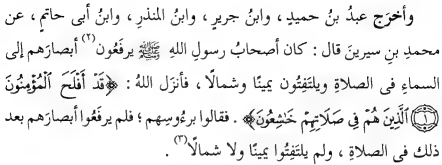 وأخرَج عبدُ بنُ حميدٍ ، وابنُ جريرٍ ، وابنُ المنذرِ ، وابنُ أبى حاتمٍ ، عن
محمدِ بنِ سيرينَ قال : كان أصحابُ رسولِ اللهِ ﷺ يرفَعُون(٢) أبصارَهم إلى
السماءِ فى الصلاةِ ويلتَفِتُون يمينًا وشمالًا ، فأنزَل اللهُ : ﴿قَدْ أَفْلَحَ ٱلْمُؤْمِنُونَ
﴿١﴾ ٱلَّذِينَ هُمْ فِى صَلَاتِهِمْ خَٰشِعُونَ﴾ . فقالوا برءُوسِهم ؛ فلم يرفَعُوا أبصارَهم بعدَ
ذلك فى الصلاةِ ، ولم يلتَفِتُوا يمينًا ولا شمالًا(٣) .